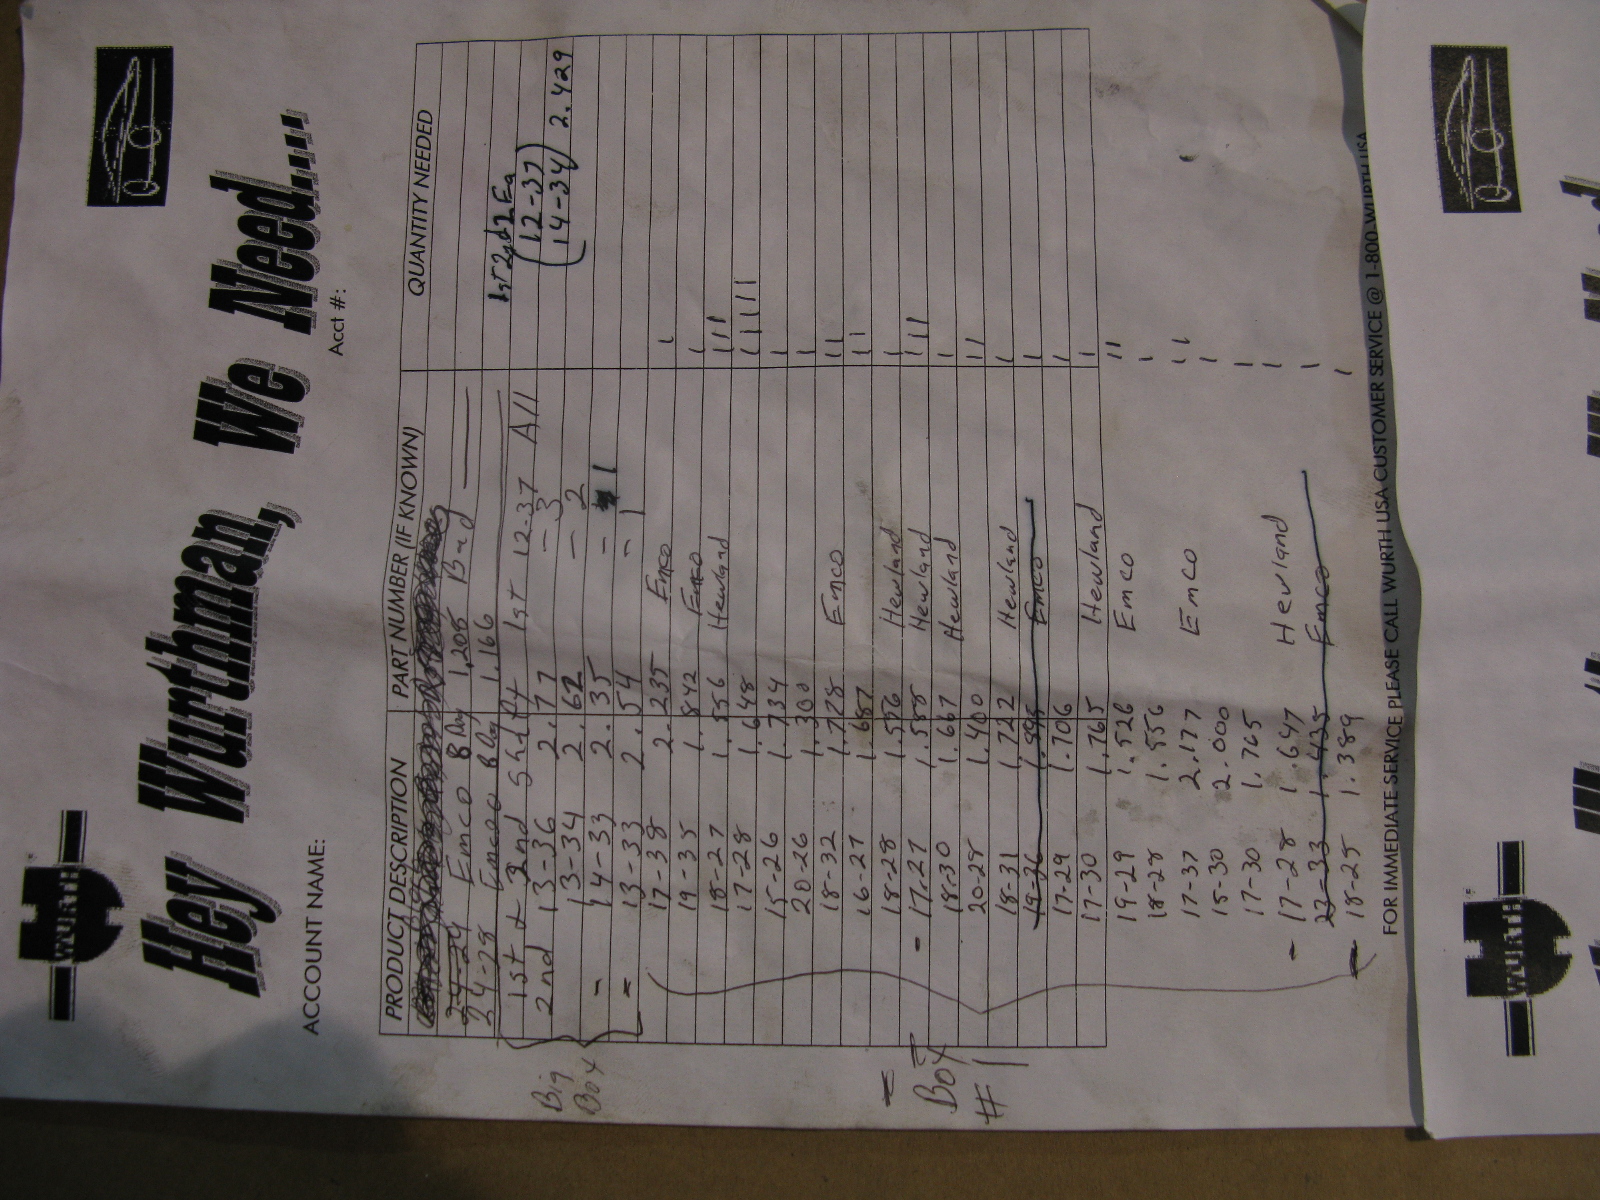 WURTH
Hey Wurthman, We Need....
ACCOUNT NAME: Acct #:
PRODUCT DESCRIPTION PART NUMBER (IF KNOWN) QUANTITY NEEDED
24-29 Emco 8 Day 1.205 Bad
24-28 Emco 8 Day 1.166
1st & 2nd Shaft 1st 12-37 All 1st 2nd 2 Ea
2nd 13-36 2.77 - 3 (12-37)
13-34 2.62 - 2 (14-34) 2.429
- 14-33 2.35 - 1
- 13-33 2.54 - 1
Big
Box
17-38 2.235 Emco I
19-35 1.842 Emco I
18-27 1.556 Hewland III
17-28 1.648 IIIII
15-26 1.734 I
20-26 1.300 I
18-32 1.778 Emco II
16-27 1.687 II
18-28 1.556 Hewland I
- 17-27 1.588 Hewland III
18-30 1.667 Hewland I
20-28 1.400 II
18-31 1.722 Hewland I
19-36 1.895 Emco I
17-29 1.706 I
17-30 1.765 Hewland I
19-29 1.526 Emco II
18-28 1.556 I
17-37 2.177 Emco II
15-30 2.000 I
17-30 1.765 I
- 17-28 1.647 Hewland I
23-33 1.435 Emco I
- 18-25 1.389 I
Box
# 1
FOR IMMEDIATE SERVICE PLEASE CALL WURTH USA CUSTOMER SERVICE @ 1-800-WURTH USA
WURTH